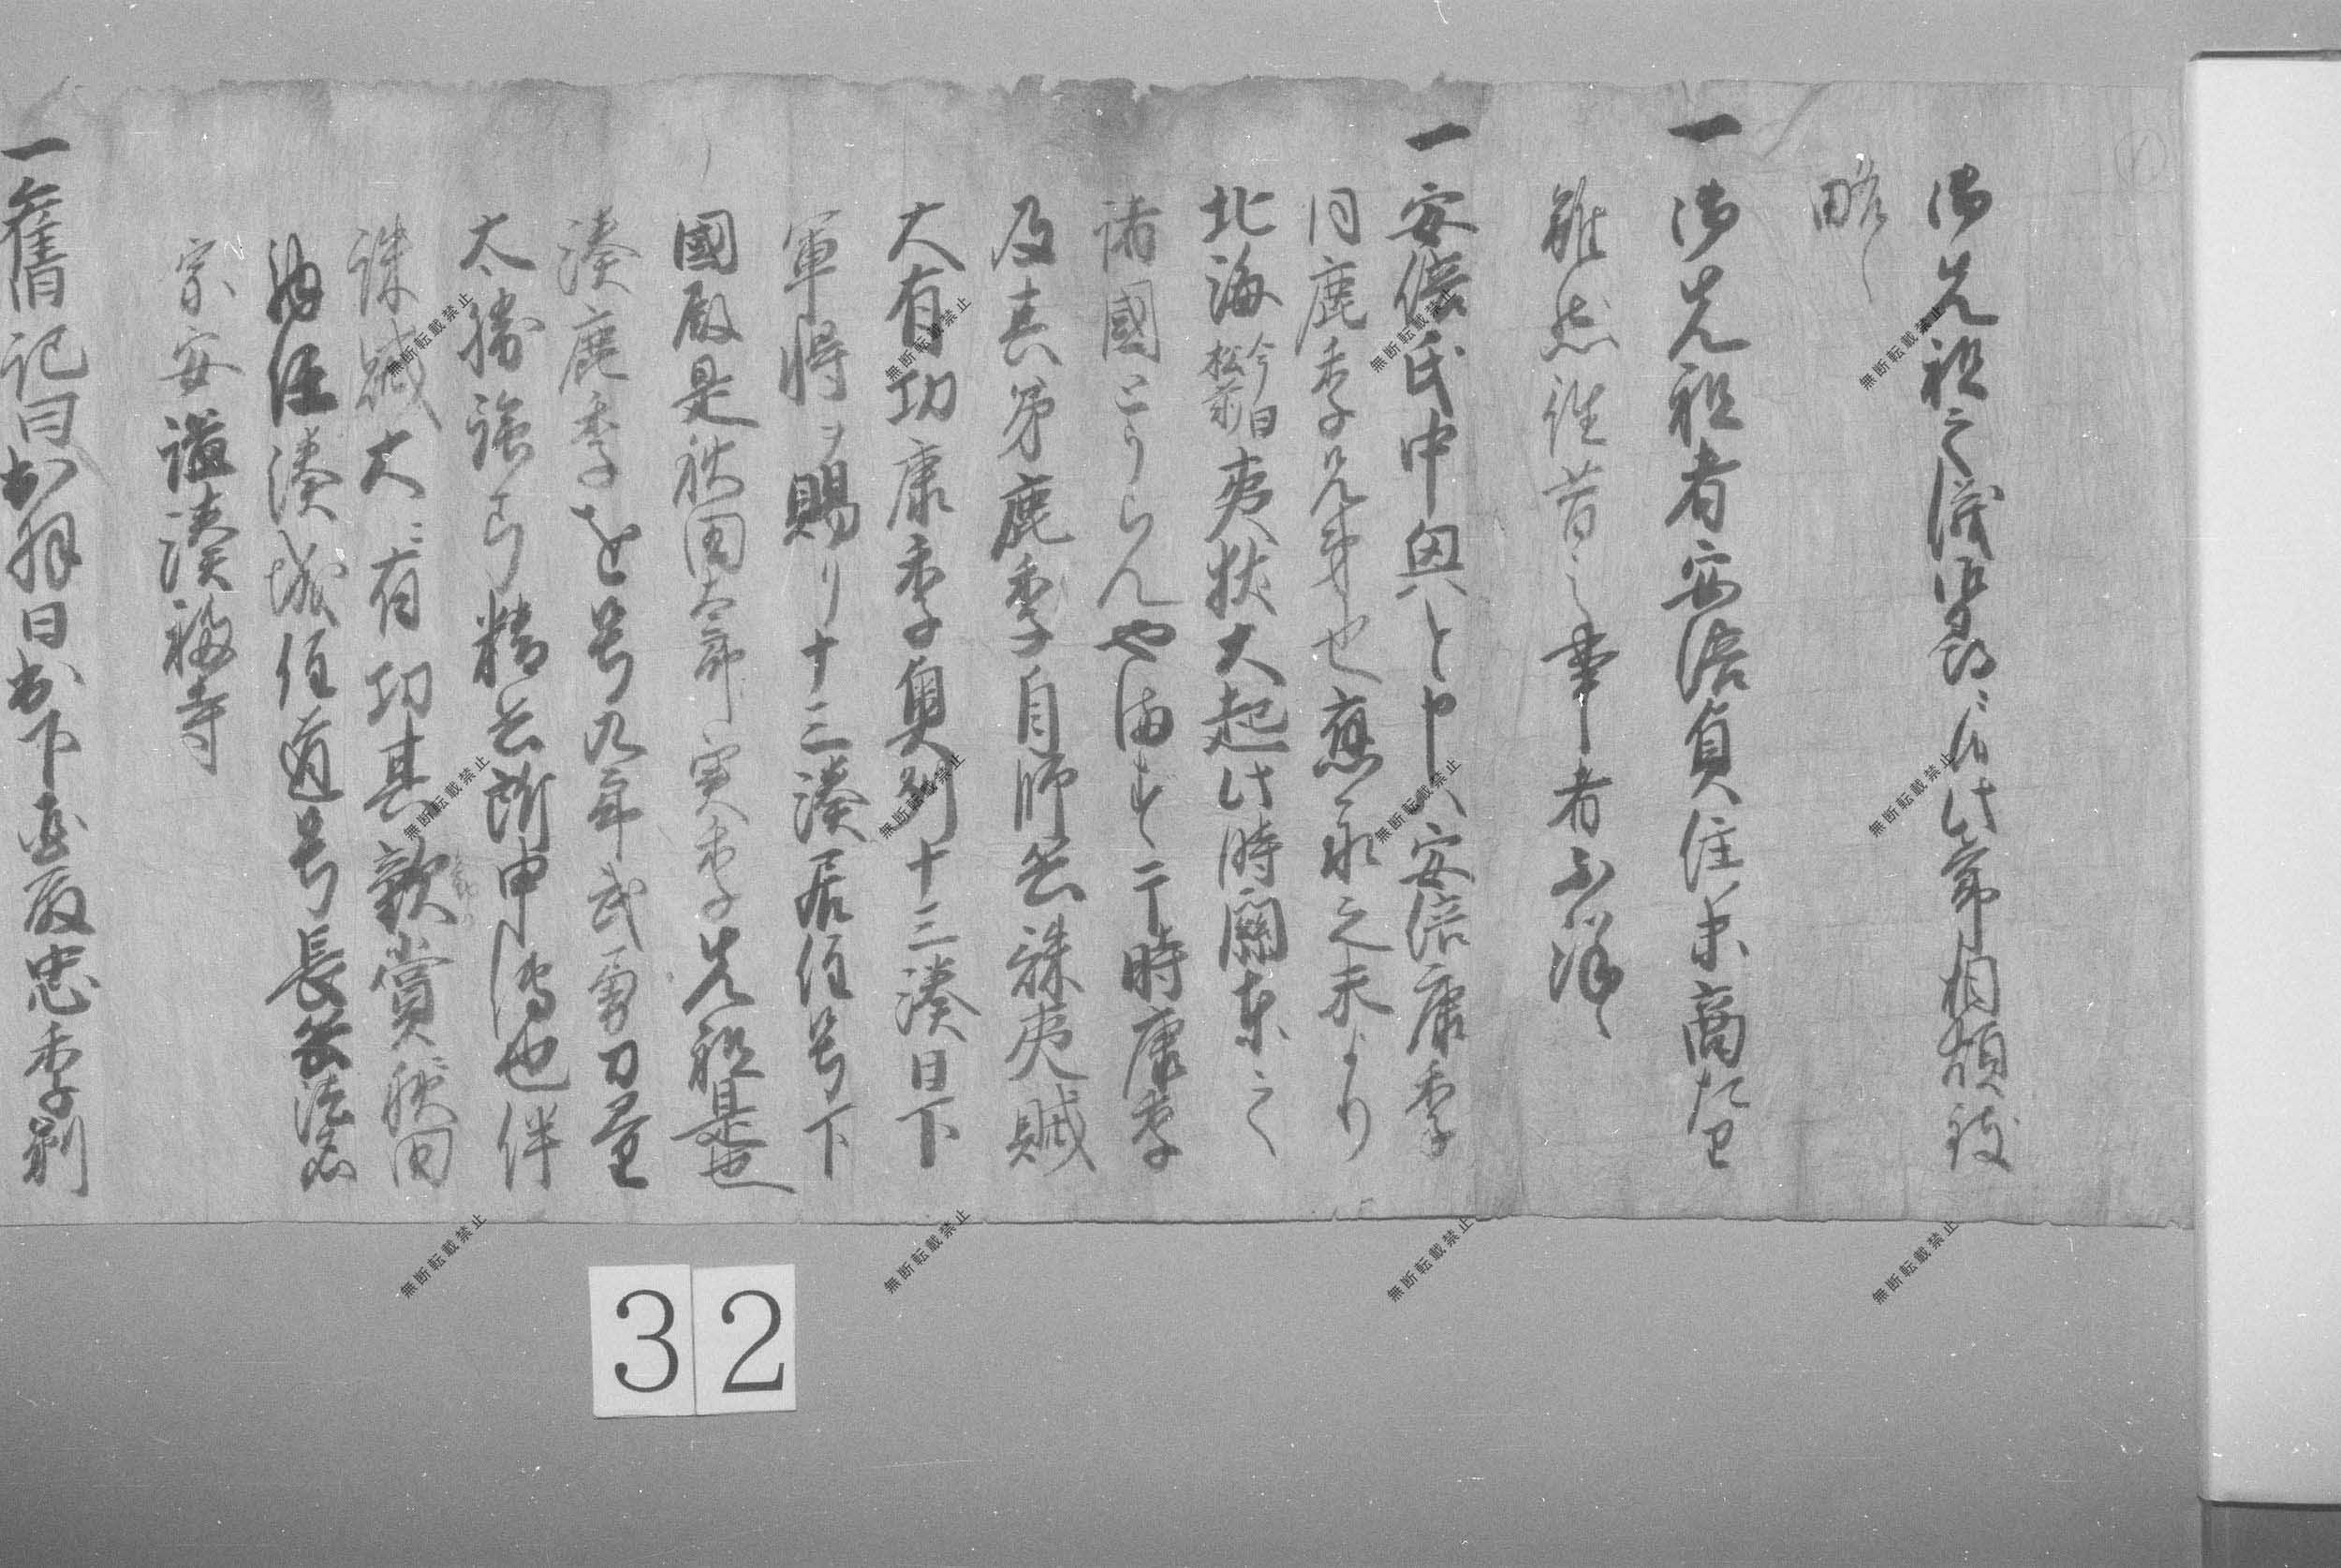 御先祖之儀
略之
一御先祖者安倍貞任末裔
雖然往昔之事者不詳
一安倍氏中興と申ハ安倍康季
同鹿季兄弟也應永之末より
北海今日松前夷狄大起此時關東之
諸國こうらんやまず于時康季
及真弟鹿季自師兵誅夷賊
大有功康季奥州十三湊日下
軍将ヲ賜リ十三湊居住号下
國殿是秋田実季先祖是也
湊鹿季と号九年武勇力量
太勝強弓精兵所申傳也伴
誅賊大ニ有功其歡賞ニ秋田
湊城住道号長
宗安諡湊福寺
一舊記曰出羽日出下直殿忠季嗣
32
無断転載禁止
無断転載禁止
無断転載禁止
無断転載禁止
無断転載禁止
無断転載禁止
無断転載禁止
無断転載禁止
無断転載禁止
無断転載禁止
無断転載禁止
無断転載禁止